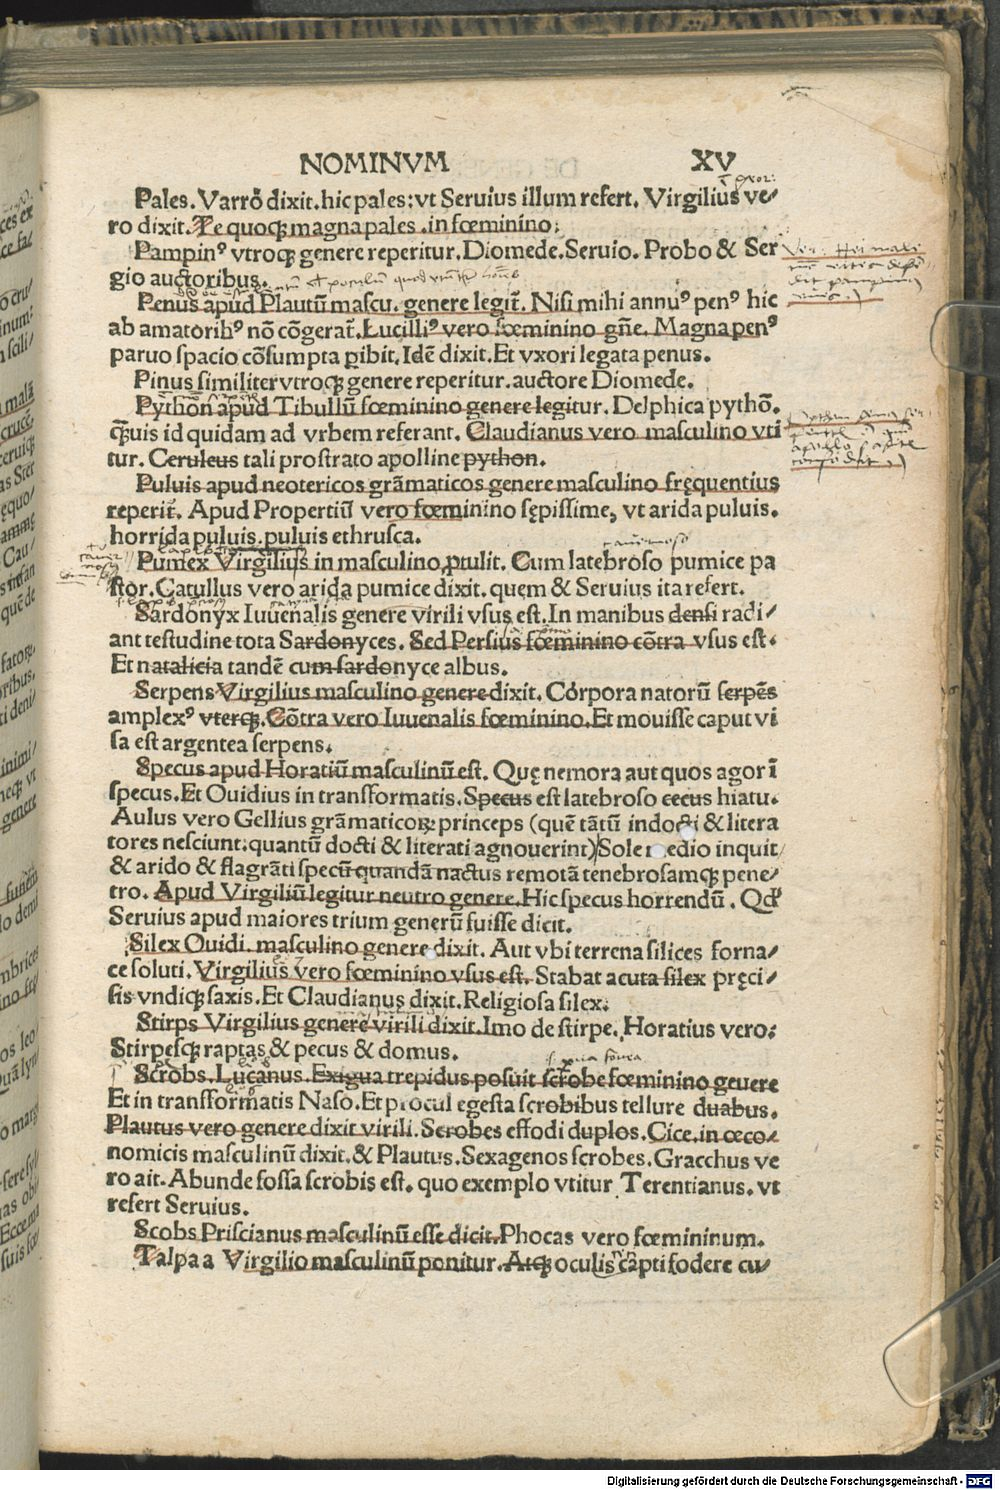 NOMINVM XV
Pales. Varrō dixit. hic pales: vt Seruius illum refert. Virgilius ve⸗
ro dixit. Te quoqꝫ magna pales. in fœminino:
Pampinꝰ vtroqꝫ genere reperitur. Diomede. Seruio. Probo & Ser
gio auctoribus.
Penus apud Plautū mascu. genere legit̄. Nisi mihi annuꝰ penꝰ hic
ab amatoribꝰ nō cōgerat̄. Lucilliꝰ vero fœminino gn̄e. Magna penꝰ
paruo spacio cōsumpta ꝑibit. Idē dixit. Et vxori legata penus.
Pinus similiter vtroqꝫ genere reperitur. auctore Diomede.
Pythōn apud Tibullū fœminino genere legitur. Delphica pythō.
q̄uis id quidam ad vrbem referant. Claudianus vero masculino vti
tur. Ceruleus tali prostrato apolline python.
Puluis apud neotericos grāmaticos genere masculino fręquentius
reperit̄. Apud Propertiū vero fœminino sępissime, vt arida puluis.
horrida puluis. puluis ethrusca.
Pumex Virgilius in masculino ꝓtulit. Cum latebroso pumice pa
stor. Catullus vero arida pumice dixit. quem & Seruius ita refert.
Sardonyx Iuuenalis genere virili vsus est. In manibus densi radi⸗
ant testudine tota Sardonyces. Sed Persius fœminino cōtra vsus est.
Et natalicia tandē cum sardonyce albus.
Serpens Virgilius masculino genere dixit. Corpora natorū serpēs
amplexꝰ vterqꝫ. Cōtra vero Iuuenalis fœminino. Et mouisse caput vi
sa est argentea serpens.
Specus apud Horatiū masculinū est. Quę nemora aut quos agor ī
specus. Et Ouidius in transformatis. Specus est latebroso cecus hiatu.
Aulus vero Gellius grāmaticoꝝ princeps (quē tātū indocti & litera
tores nesciunt: quantū docti & literati agnouerint) Sole medio inquit
& arido & flagrāti specū quandā nactus remotā tenebrosamqꝫ pene⸗
tro. Apud Virgiliū legitur neutro genere. Hic specus horrendū. Qd'
Seruius apud maiores trium generū fuisse dicit.
Silex Ouidi. masculino genere dixit. Aut vbi terrena silices forna⸗
ce soluti. Virgilius vero fœminino vsus est. Stabat acuta silex pręci⸗
sis vndiqꝫ saxis. Et Claudianus dixit. Religiosa silex.
Stirps Virgilius genere virili dixit. Imo de stirpe. Horatius vero:
Stirpesqꝫ raptas & pecus & domus.
Scrobs. Lucanus. Exigua trepidus posuit scrobe fœminino genere
Et in transformatis Naso. Et procul egesta scrobibus tellure duabus.
Plautus vero genere dixit virili. Scrobes effodi duplos. Cice. in œco⸗
nomicis masculinū dixit. & Plautus. Sexagenos scrobes. Gracchus ve
ro ait. Abunde fossa scrobis est. quo exemplo vtitur Terentianus. vt
refert Seruius.
Scobs Priscianus masculinū esse dicit. Phocas vero fœmininum.
Talpa a Virgilio masculinū ponitur. Atqꝫ oculis capti fodere cu⸗
Digitalisierung gefördert durch die Deutsche Forschungsgemeinschaft - DFG